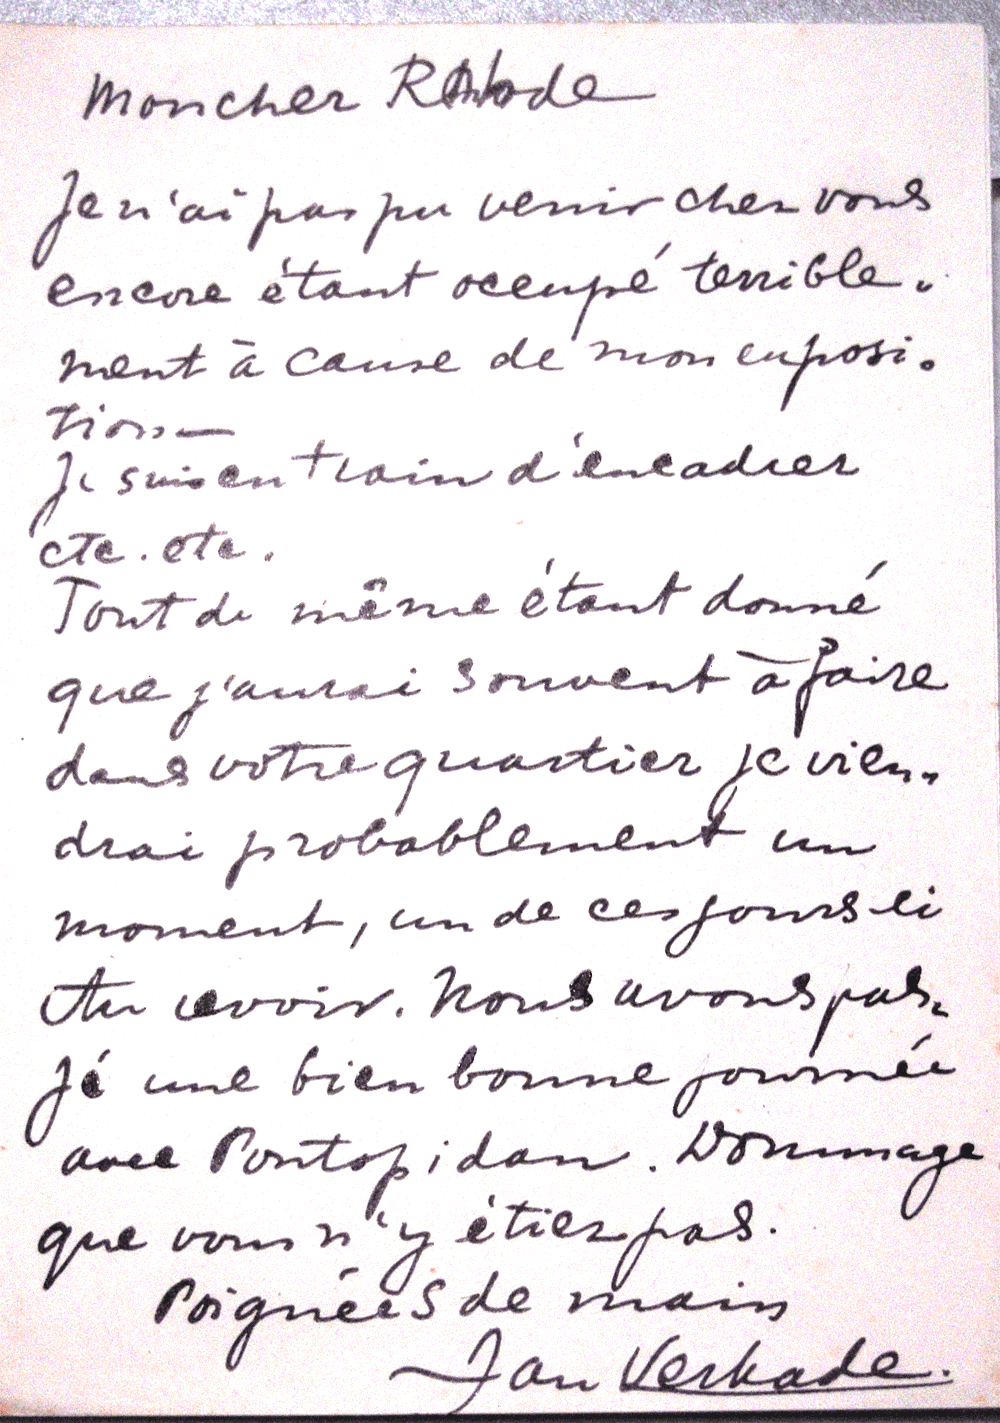 Mon cher Rohde
Je n'ai pas pu venir chez vous
encore étant occupé terrible-
ment à cause de mon exposi-
tion —
Je suis en train d'encadrer
etc. etc.
Tout de même étant donné
que j'aurai souvent à faire
dans votre quartier je vien-
drai probablement un
moment, un de ces jours-ci
Au revoir. Nous avons pas-
sé une bien bonne journée
avec Pontopidan. Dommage
que vous n'y étiez pas.
Poignées de main
Jan Verkade.